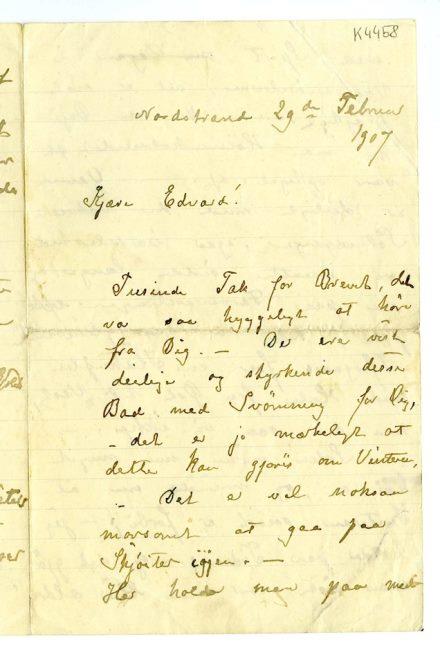 K4458
Nordstrand 29de Februar
1907
Kjære Edvard!
Tusinde Tak for Brevet, det
va saa hyggeligt at höre
fra Dig. — De ere vist
deilige og styrkende disse
Bad med Svömning for Dig,
– det er jo mærkeligt at
dette kan gjöres om Vinteren,
– Det er vel noksaa
morsomt at gaa paa
Skjöiter igjen. —
Her holder man paa med